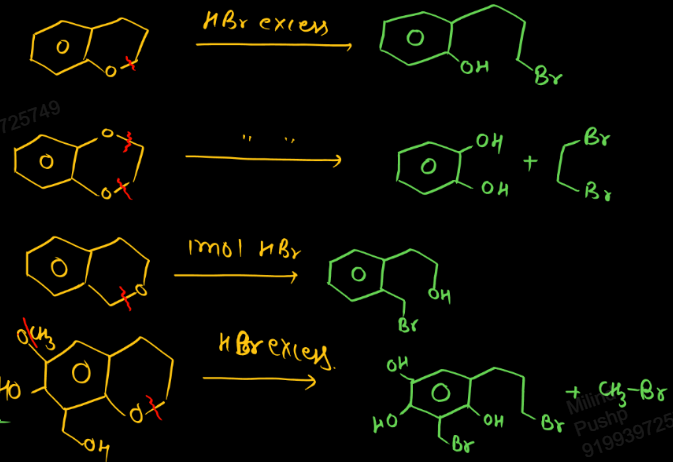 HBr excess
O
O
OH
Br
725749
O
O
O
" "
O
OH
OH
+
Br
Br
O
O
1mol HBr
O
OH
Br
OCH3
HO
O
O
OH
HBr excess.
OH
HO
O
OH
Br
Br
+ CH3-Br
Pushp
919939725